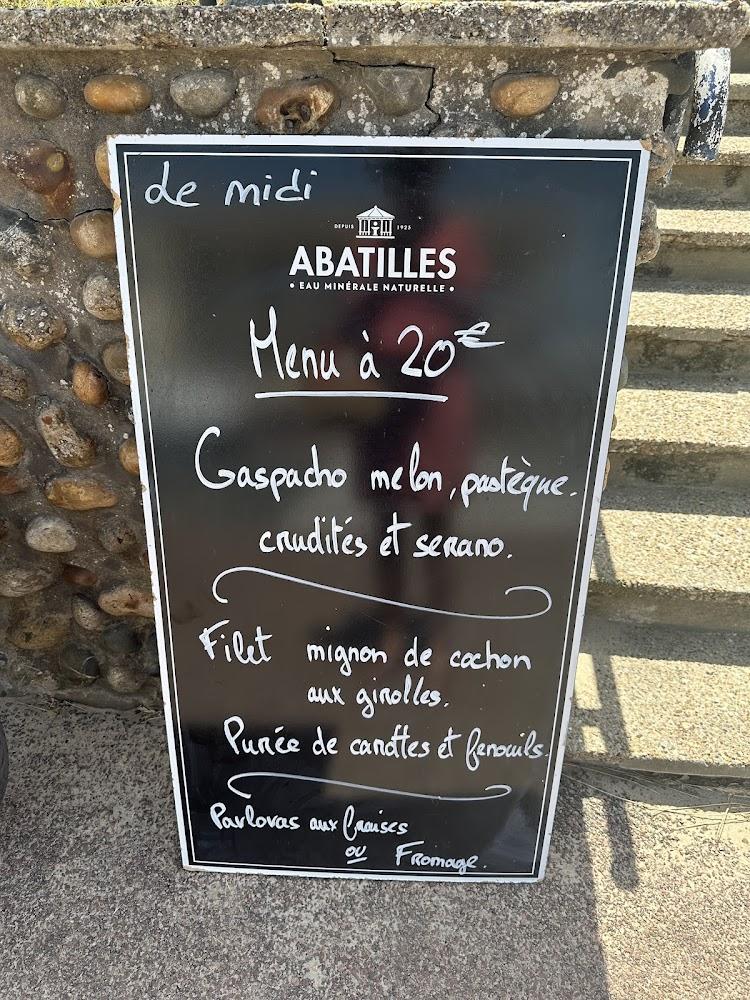 Le midi
DEPUIS 1925
ABATILLES
• EAU MINÉRALE NATURELLE •
Menu à 20€
Gaspacho melon, pastèque.
crudités et serano.
Filet mignon de cochon
aux girolles.
Purée de carottes et fenouils
Pavlovas aux fraises
ou Fromage.